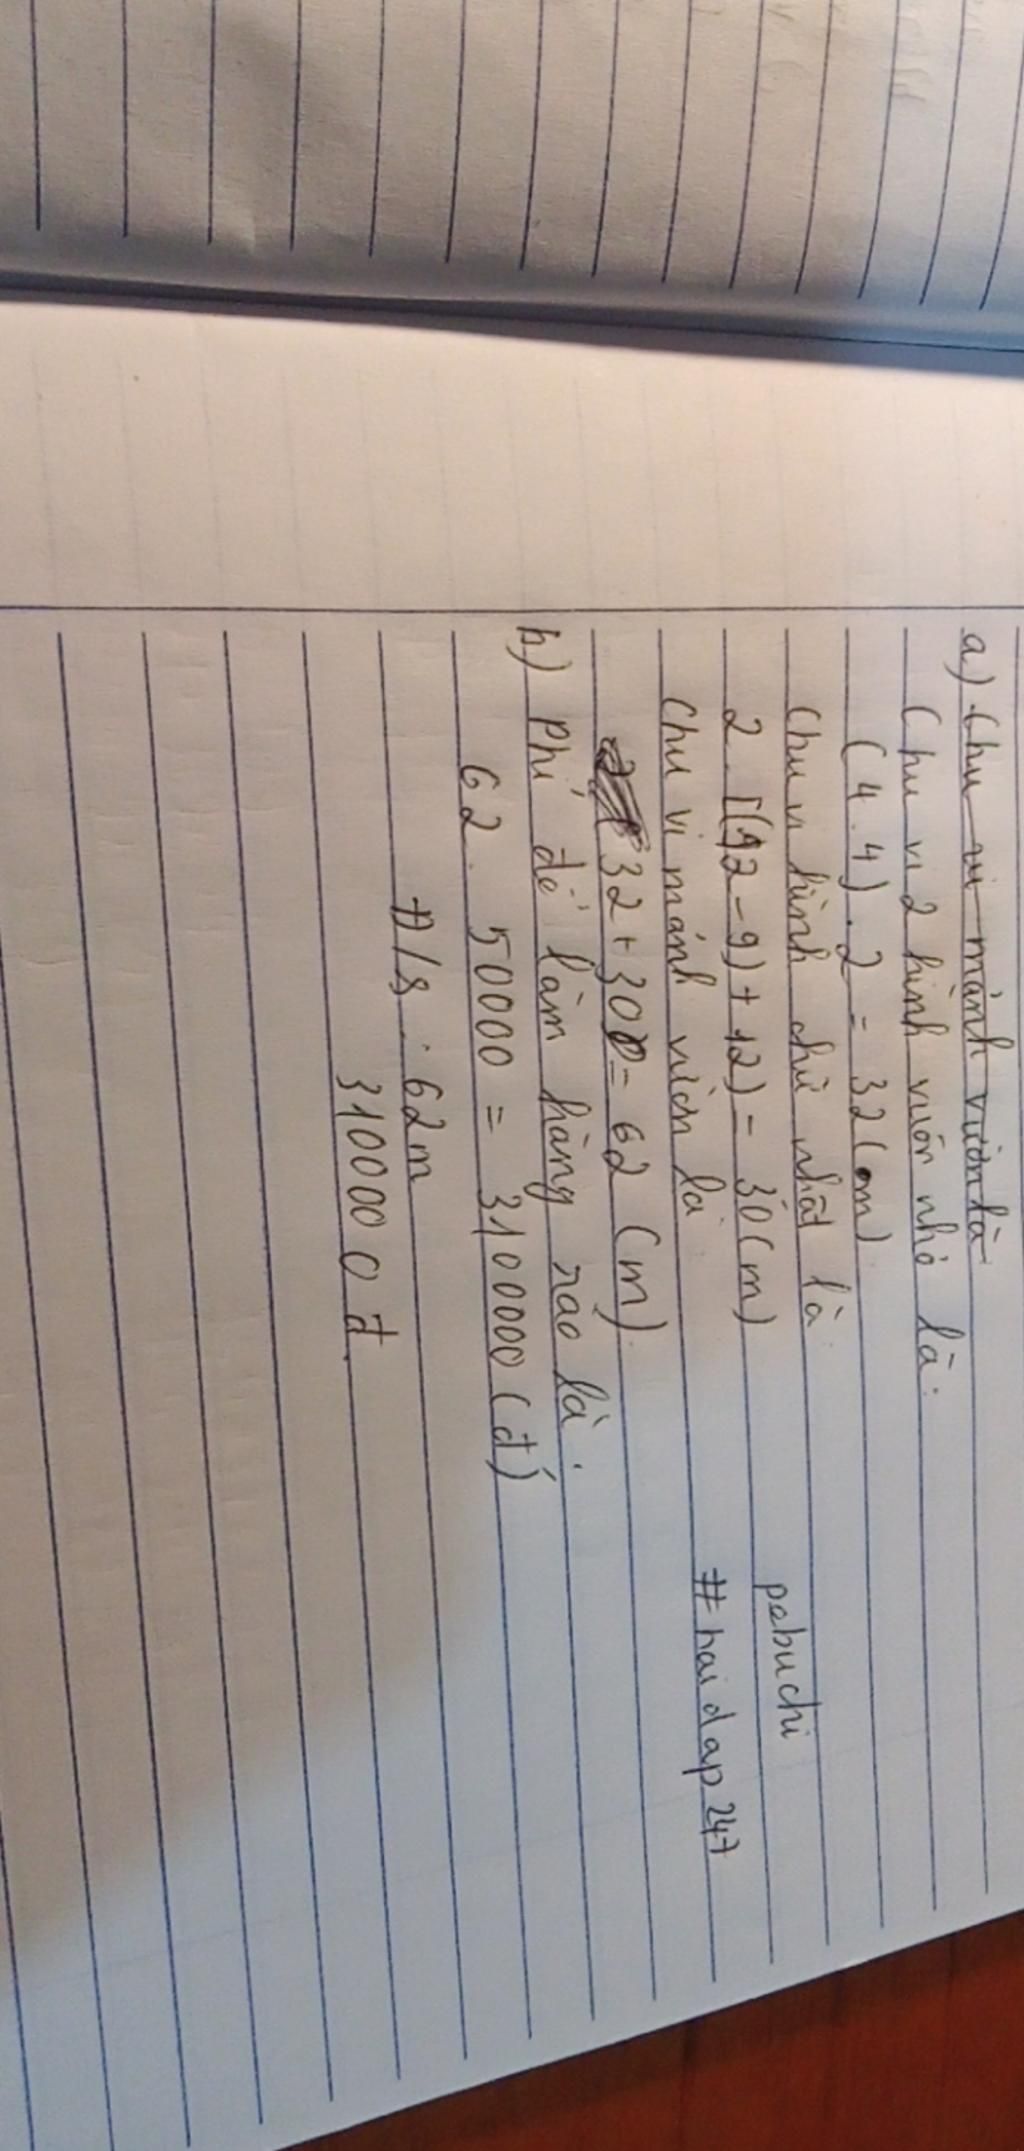 a) Chu vi mảnh vườn là
Chu vi 2 hình vuôn nhỏ là:
(4.4).2 = 32(m)
Chu vi hình chữ nhật là
2.[(12-9)+12)= 30(m)
Chu vi mảnh vườn là
32+30= 62 (m)
b) Phí để làm hàng rào là:
62. 50000 = 3100000 (đ)
Đ/s: 62m
310000 0 đ
pebuchi
#hoidap247